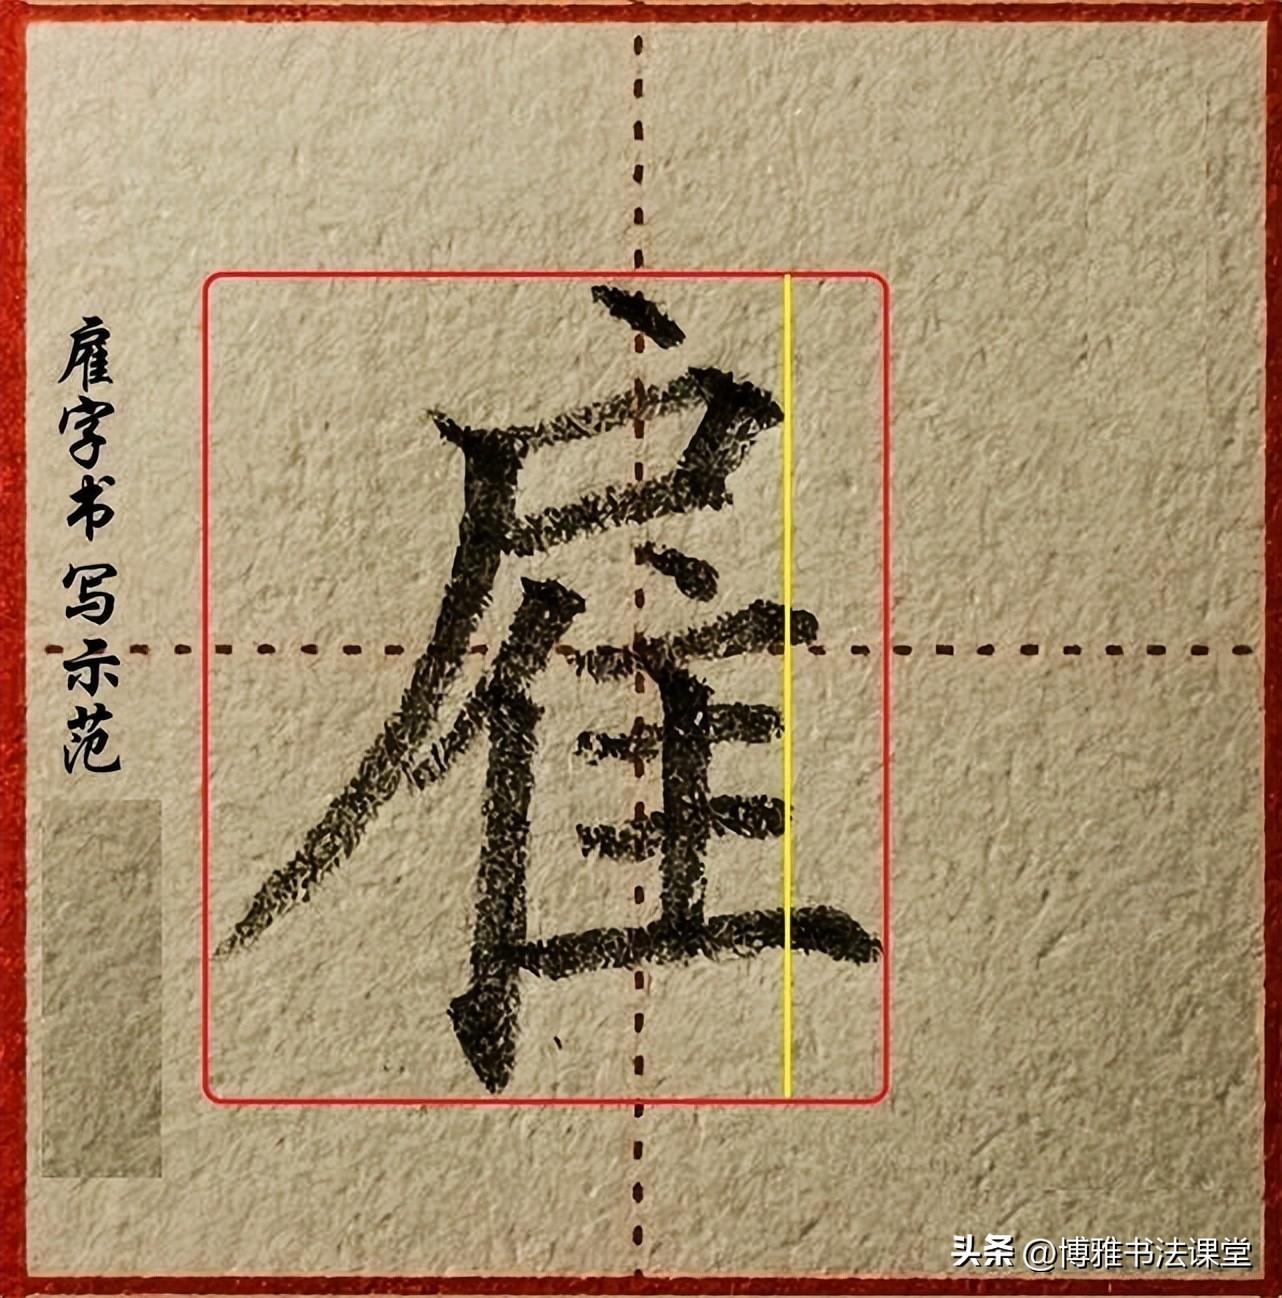 雇字书写示范
雇
头条 @博雅书法课堂